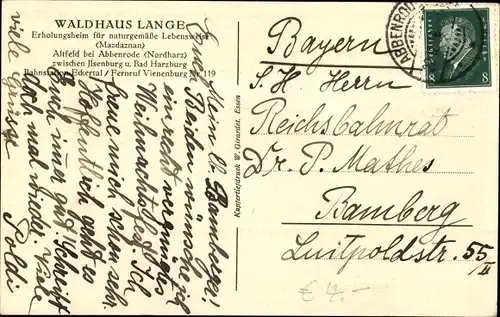 WALDHAUS LANGE
Erholungsheim für naturgemäße Lebensweise
(Mazdaznan)
Altfeld bei Abbenrode (Nordharz)
zwischen Jlsenburg u. Bad Harzburg
Bahnstation Eckertal / Fernruf Vienenburg Nr 119
Meine lb. Bamberger!
Euch Beiden wünsche ich
ein recht vergnügtes
Weihnachtsfest. Ich
freue mich schon sehr.
Hoffentlich geht es
Euch immer gut. Schreibt
doch mal wieder. Viele
viele Grüsse
Poldi
Kupfertiefdruck W. Girardet, Essen
ABBENRODE
8 8
Bayern
S. H. Herrn
Reichsbahnrat
Dr. P. Mathes
Bamberg
Luitpoldstr. 55/II
€ 4.-